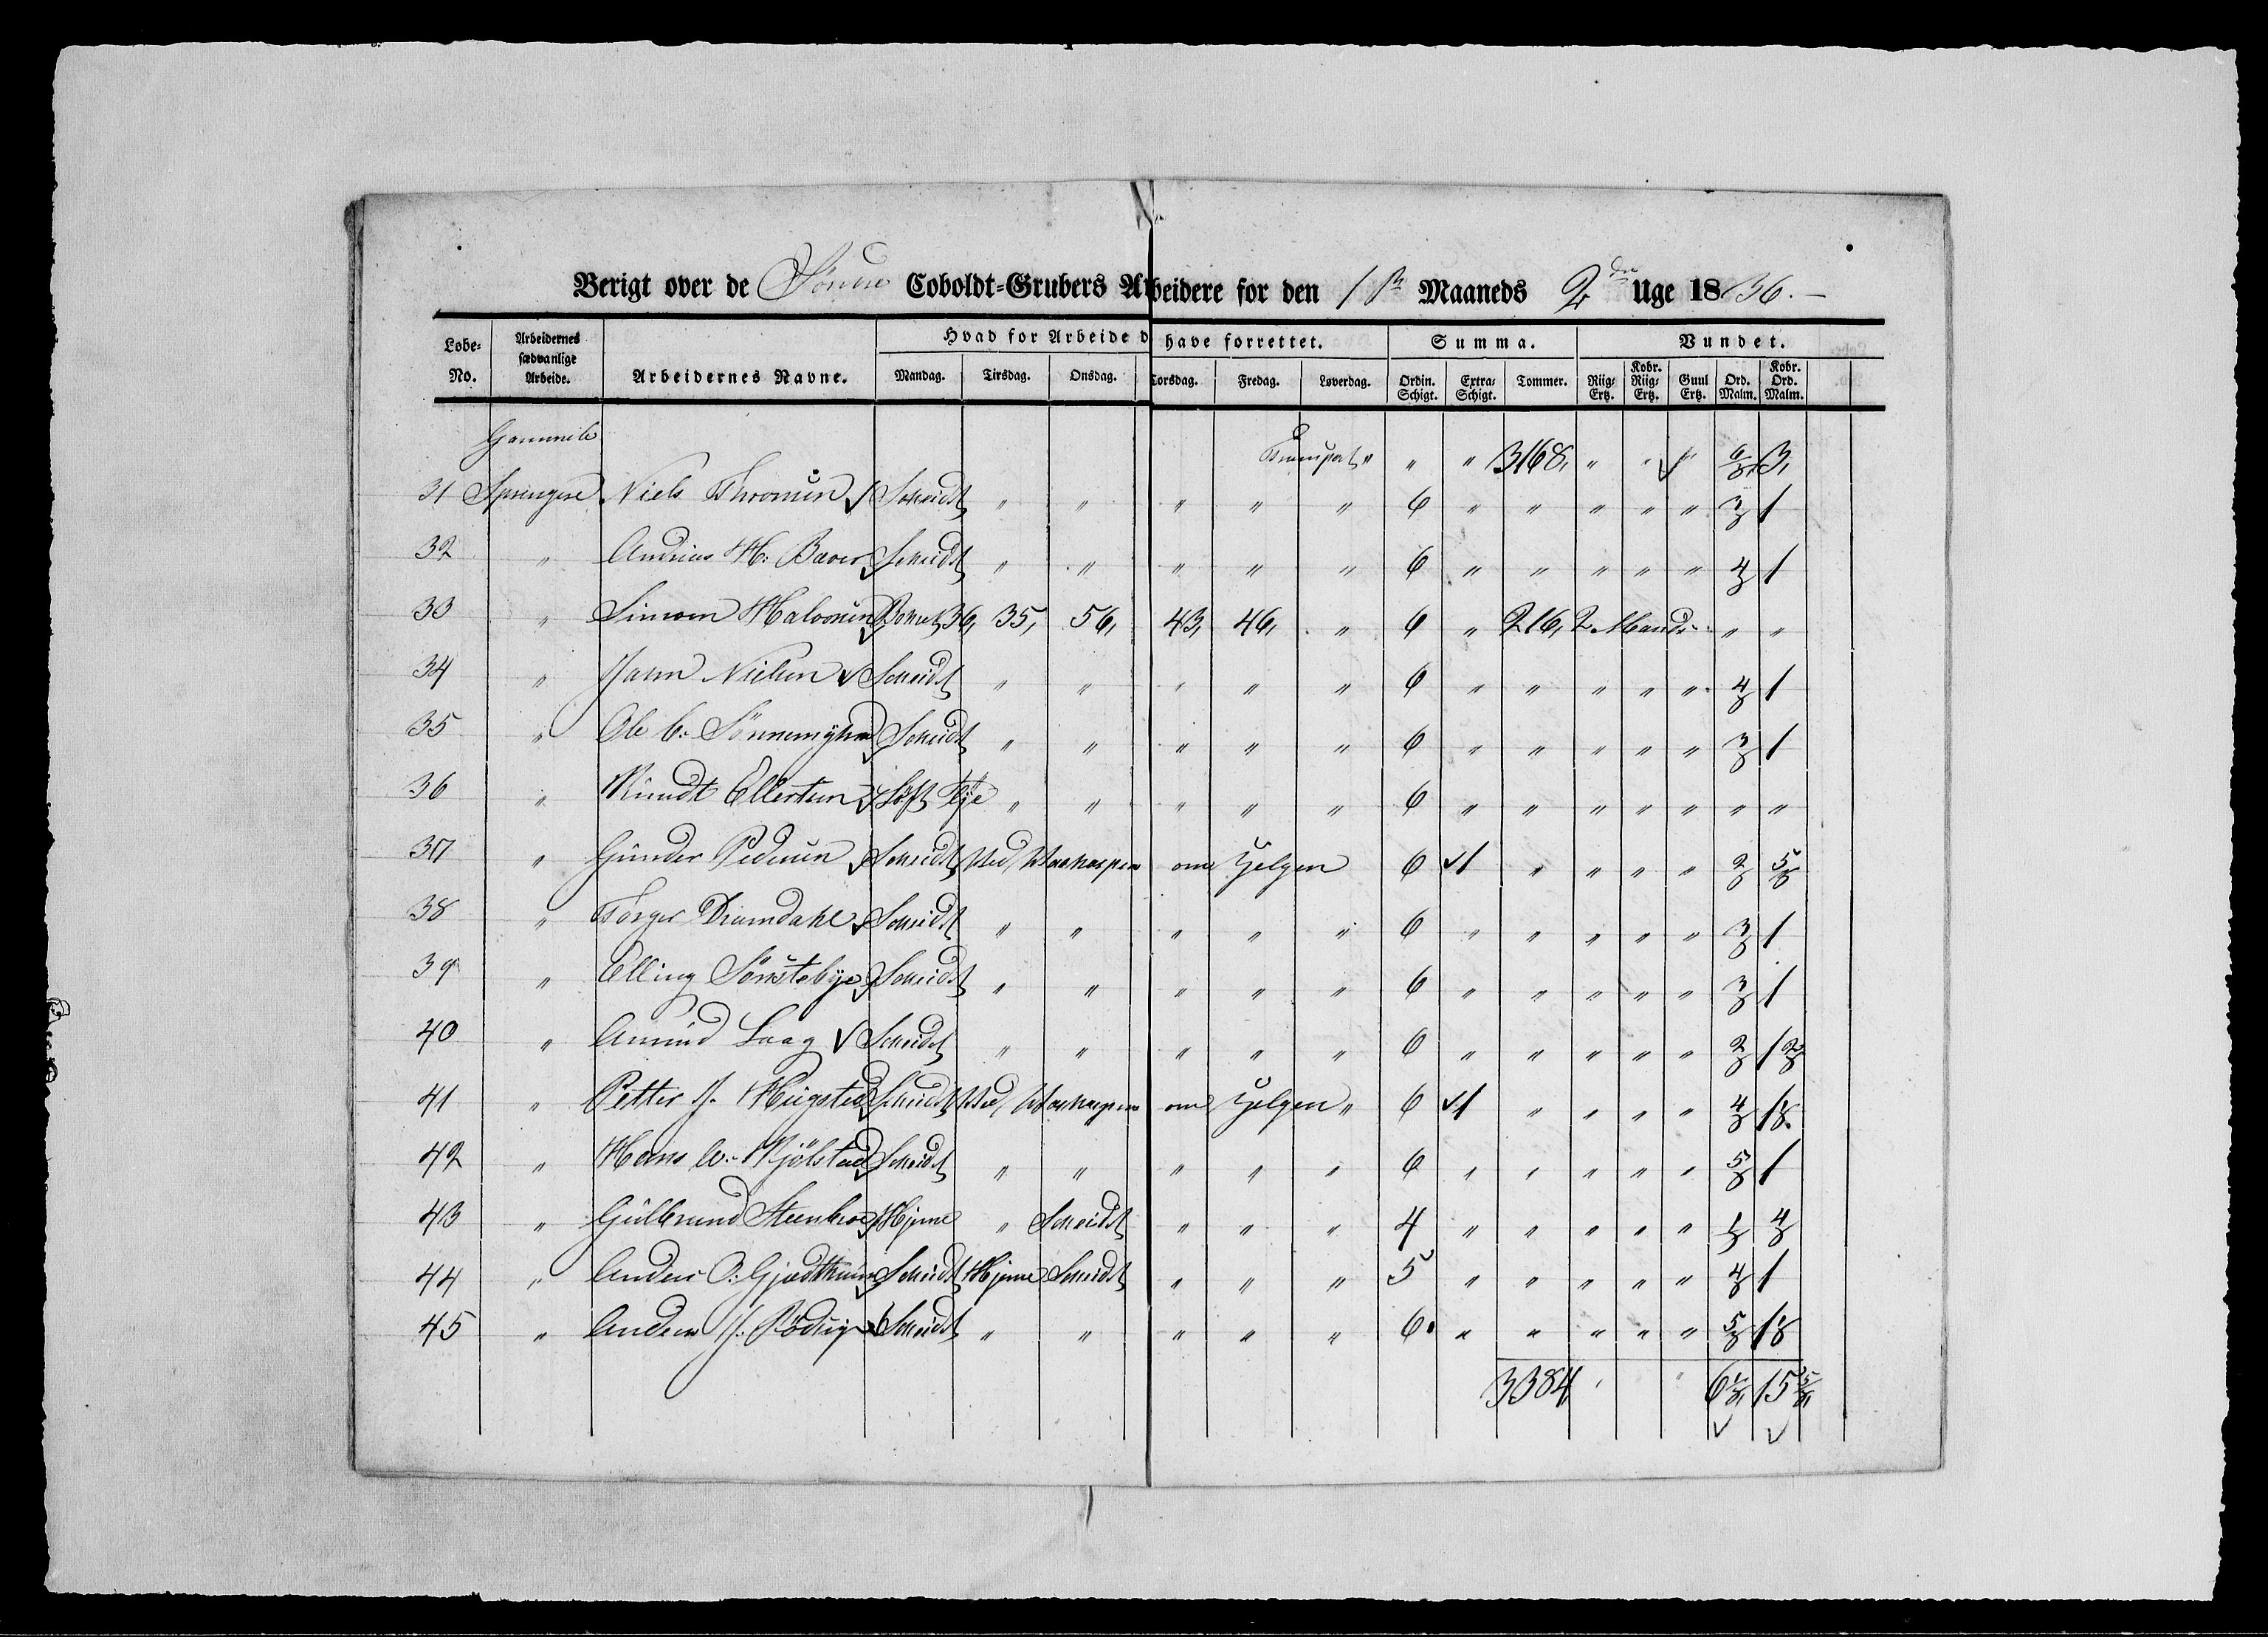 Berigt over de Söndre Coboldt-Grubers Arbeidere for den 1ste Maaneds 2den Uge 1836.
Lobe-No. Arbeidernes sædvanlige Arbeide. Arbeidernes Navne. Hvad for Arbeide de have forrettet. Summa. Vundet.
Mandag. Tirsdag. Onsdag. Torsdag. Fredag. Løverdag. Ordin. Schigt. Extra-Schigt. Tommer. Riig-Ertz. Kobr. Riig-Ertz. Guul Ertz. Ord. Malm. Kobr. Ord. Malm.
Gammele Transport " " " 3168, " " " 6/8, 3,
31 Sprengere Niels Thronsen Scheidt " " " " " 6 " " " " " 3/8 1
32 " Andreas H: Baver Scheidt " " " " " 6 " " " " " 4/8 1
33 " Simon Halvorsen Boret 36, 35, 56, 43, 46, " 6 " 216, 2 Mands " "
34 " Jahn Nielsen Scheidt " " " " " 6 " " " " " 4/8 1
35 " Ole C: Scheidt " " " " " 6 " " " " " 3/8 1
36 " Knudt Ellertsen " " " " 6 " " " " " " "
37 " Gunder Pedersen Scheidt Ved om Helgen 6 1 " " " " 2/8 5/8
38 " Torger Dramdahl Scheidt " " " " " 6 " " " " " 3/8 1
39 " Elling Sönstebye Scheidt " " " " " 6 " " " " " 3/8 1
40 " Amund Laag Scheidt " " " " " 6 " " " " " 2/8 1 2/8
41 " Petter J. Hugsted Scheidt Ved om Helgen " 6 1 " " " " 4/8 1 1/8
42 " Hans Kjölstad Scheidt " " " " " 6 " " " " " 5/8 1
43 " Gulbrand Steenbroe Hjeme " Scheidt " " " 4 " " " " " 1/8 4/8
44 " Anders O: Scheidt Hjeme Scheidt " " " 5 " " " " " 4/8 1
45 " Anders J. Scheidt " " " " " 6 " " " " " 5/8 1 1/8
3384 " " 6 1/8, 15 5/8,